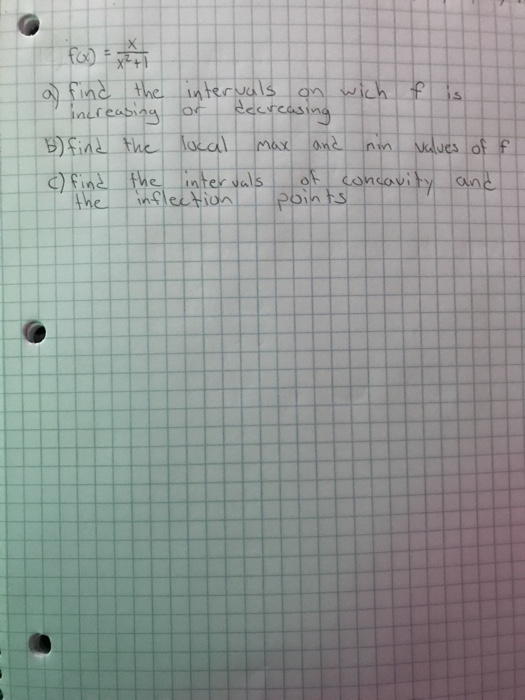 f(x) = x/x²+1
a) find the intervals on wich f is
increasing or decreasing
b) find the local max and nin values of f
c) find the intervals of concavity and
the inflection points